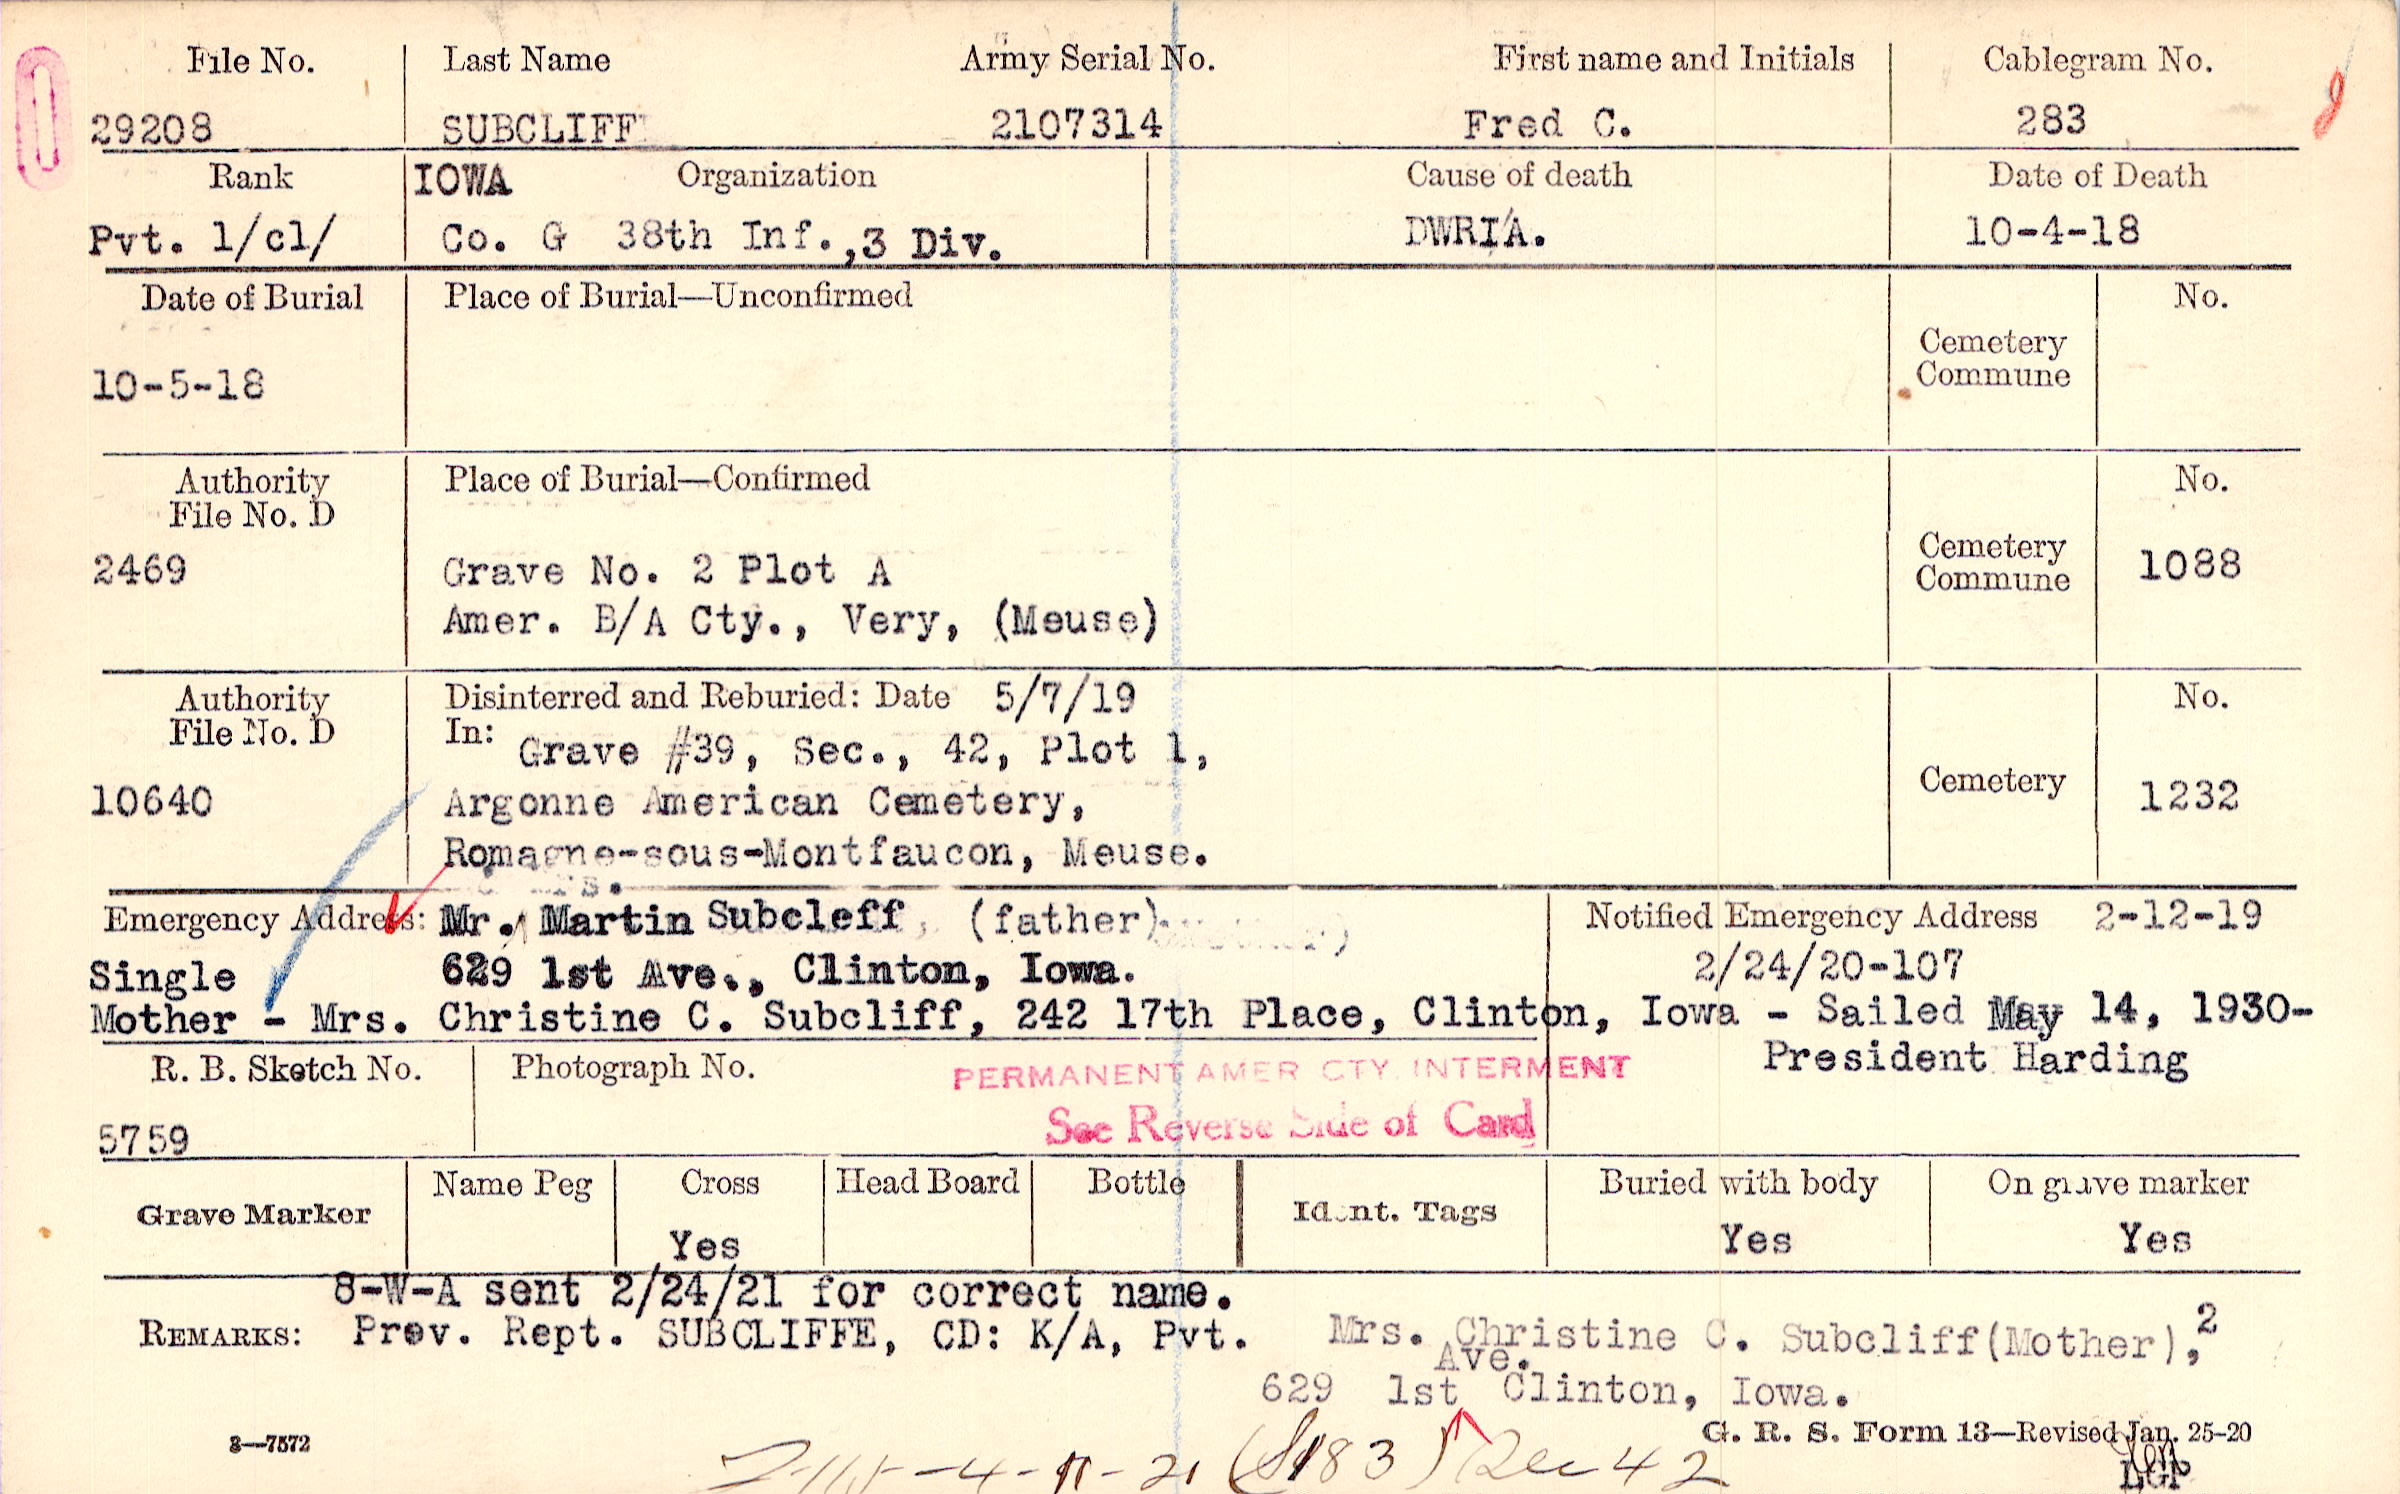 File No. Last Name Army Serial No. First name and Initials Cablegram No.
29208 SUBCLIFF 2107314 Fred C. 283
Rank IOWA Organization Cause of death Date of Death
Pvt. 1/cl/ Co. G 38th Inf.,3 Div. DWRIA. 10-4-18
Date of Burial Place of Burial—Unconfirmed No.
Cemetery
Commune
10-5-18
Authority Place of Burial—Confirmed No.
File No. D
Cemetery
Commune
2469 Grave No. 2 Plot A 1088
Amer. B/A Cty., Very, (Meuse)
Authority Disinterred and Reburied: Date 5/7/19 No.
File No. D In: Grave #39, Sec., 42, Plot 1,
10640 Argonne American Cemetery, Cemetery 1232
Romagne-sous-Montfaucon, Meuse.
Emergency Address: Mr. Martin Subcleff, (father) Notified Emergency Address 2-12-19
Single 629 1st Ave., Clinton, Iowa. 2/24/20-107
Mother - Mrs. Christine C. Subcliff, 242 17th Place, Clinton, Iowa - Sailed May 14, 1930-
President Harding
R. B. Sketch No. Photograph No. PERMANENT AMER CTY. INTERMENT
See Reverse Side of Card
5759
Grave Marker Name Peg Cross Head Board Bottle Ident. Tags Buried with body On grave marker
Yes Yes Yes
8-W-A sent 2/24/21 for correct name.
REMARKS: Prev. Rept. SUBCLIFFE, CD: K/A, Pvt. Mrs. Christine C. Subcliff(Mother),2
Ave.
629 1st Clinton, Iowa.
3—7572 G. R. S. Form 13—Revised Jan. 25-20
42
LGP